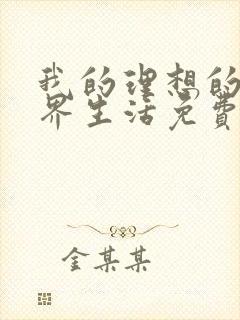 我的理想的
界生活免费
金某某